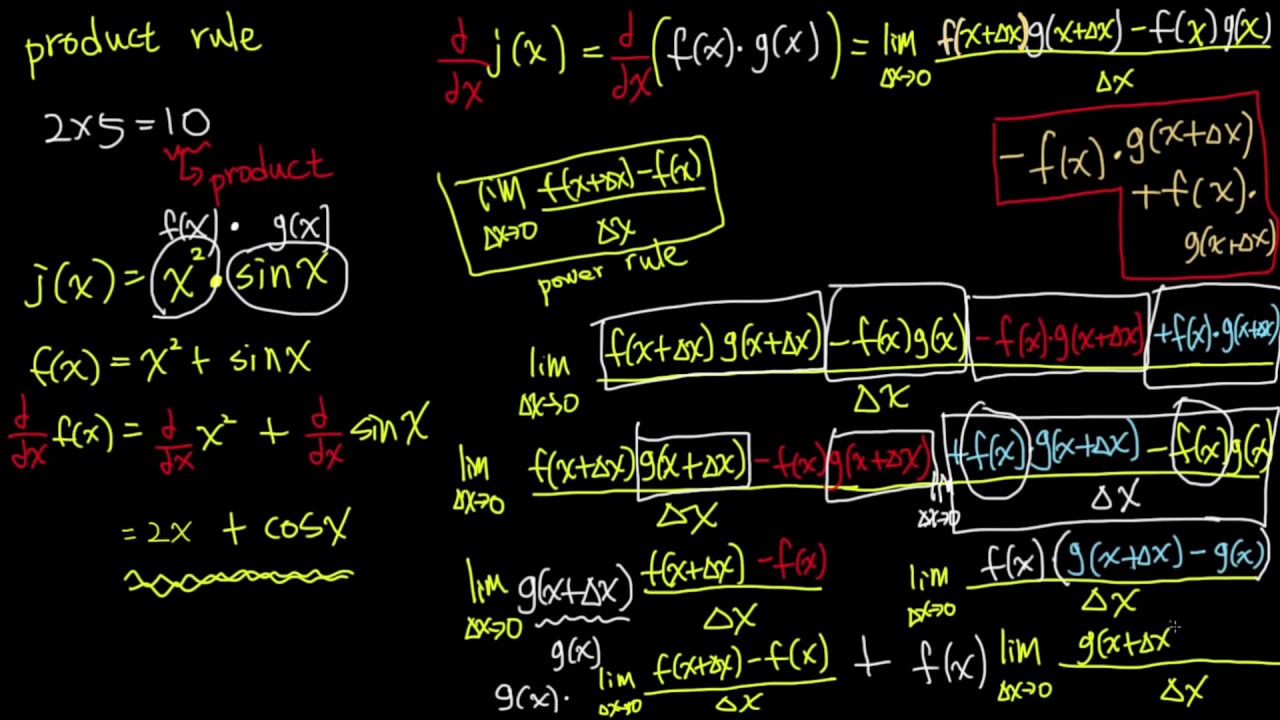 product rule
2×5=10
↳ product
f(x) · g(x)
j(x) = x² · sinx
f(x) = x² + sinx
d/dx f(x) = d/dx x² + d/dx sinx
= 2x + cosx
d/dx j(x) = d/dx (f(x)·g(x)) = lim Δx→0 f(x+Δx)g(x+Δx) − f(x)g(x) / Δx
− f(x)·g(x+Δx)
+ f(x)·
g(x+Δx)
lim Δx→0 f(x+Δx) − f(x) / Δx
power rule
lim Δx→0 f(x+Δx) g(x+Δx) − f(x)g(x) − f(x)·g(x+Δx) + f(x)·g(x+Δx) / Δx
lim Δx→0 f(x+Δx) g(x+Δx) − f(x) g(x+Δx) / Δx lim Δx→0 + f(x)·g(x+Δx) − f(x)g(x) / Δx
lim Δx→0 g(x+Δx) f(x+Δx) − f(x) / Δx lim Δx→0 f(x)·(g(x+Δx) − g(x)) / Δx
g(x)
g(x)· lim Δx→0 f(x+Δx) − f(x) / Δx + f(x) lim Δx→0 g(x+Δx / Δx